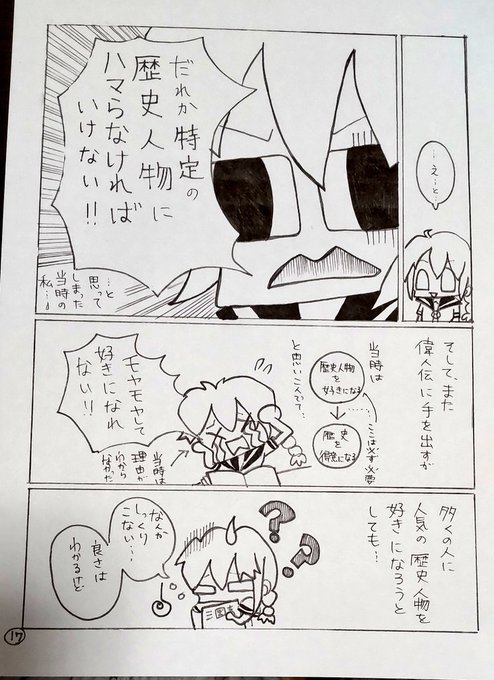 …え…と…
だれか特定の
歴史人物に
ハマらなければ
いけない!!
…と
思って
しまった
当時の
私…
そして、また
偉人伝に手を出すが
当時は
歴史人物
を
好きになる
歴史
を
得意になる
ここは必ず必要
と思いこんでて…
モヤモヤして
好きになれ
ない!!
当時は
理由が
わから
なかった
多くの人に
人気の歴史人物を
好きになろうと
しても…
なんか
しっくり
こない…
良さは
わかるけど
三国志
17